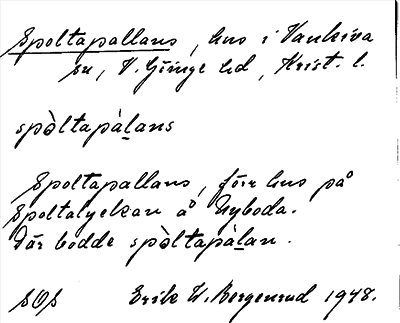 Spoltapallans, hus i Vankiva
sn, V. Göinge hd, Krist. l.
spòltapàḻans
Spoltapallans, förr hus på
Spoltalyckan å Nyboda.
Där bodde spòltapàḻan.
sOs Erik W. Bergenrud 1948.